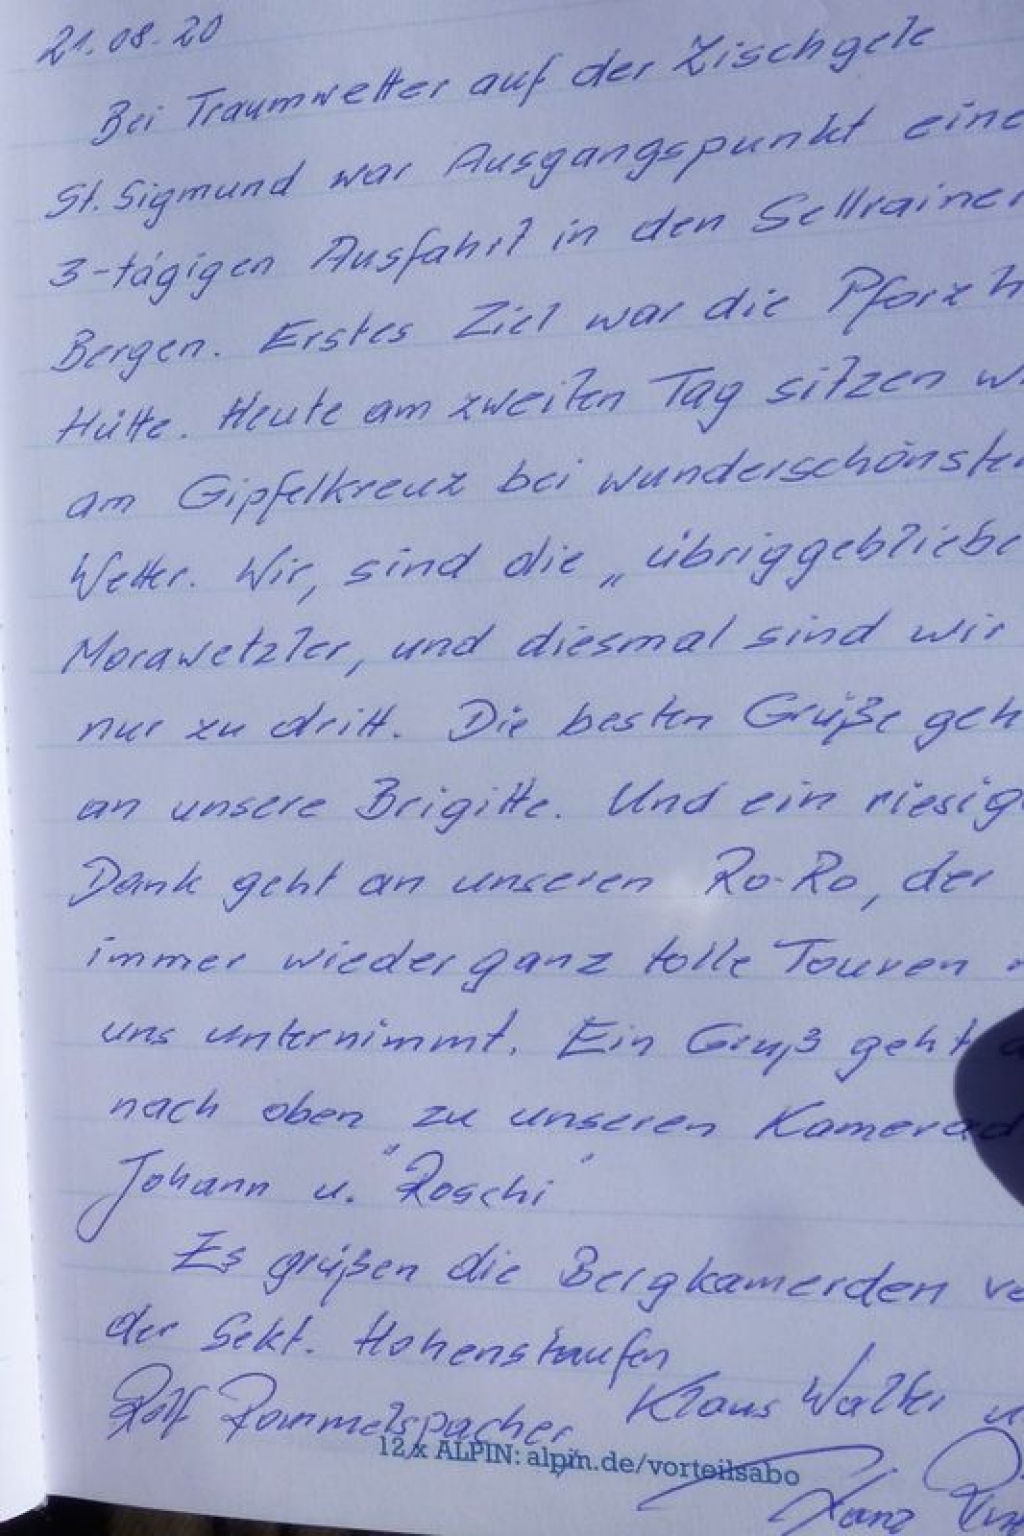 21.08.20
Bei Traumwetter auf der Zischgele
St. Sigmund war Ausgangspunkt eine
3-tägigen Ausfahrt in den Sellrainer
Bergen. Erstes Ziel war die Pforzh
Hütte. Heute am zweiten Tag sitzen w
am Gipfelkreuz bei wunderschönsten
Wetter. Wir, sind die „übriggebliebe
Morawetzler, und diesmal sind wir
nur zu dritt. Die besten Grüße geh
an unsere Brigitte. Und ein riesig
Dank geht an unseren Ro-Ro, der
immer wieder ganz tolle Touren
uns unternimmt. Ein Gruß geht a
nach oben zu unseren Kamerad
Johann u. "Roschi"
Es grüßen die Bergkamerden vo
der Sekt. Hohenstaufen
Rolf Rommelspacher Klaus Walter u
12 x ALPIN: alpin.de/vorteilsabo